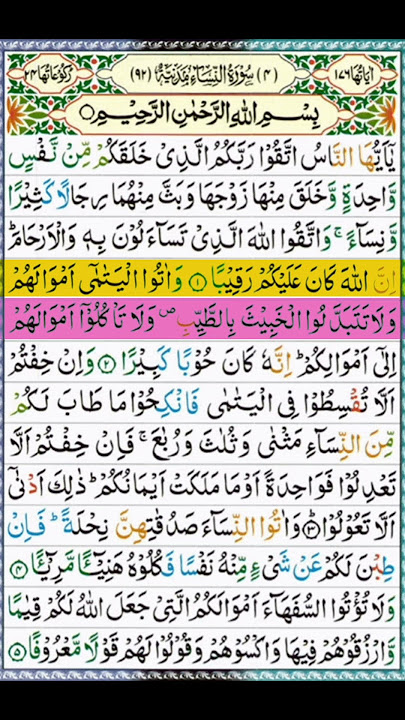 اٰیَاتُهَا ۱۷۶
(۴) سُوْرَةُ النِّسَآءِ مَدَنِیَّةٌ (۹۲)
رُكُوْعَاتُهَا ۲۴
بِسْمِ اللّٰهِ الرَّحْمٰنِ الرَّحِیْمِ
یٰۤاَیُّهَا النَّاسُ اتَّقُوْا رَبَّكُمُ الَّذِیْ خَلَقَكُمْ مِّنْ نَّفْسٍ
وَّاحِدَةٍ وَّخَلَقَ مِنْهَا زَوْجَهَا وَبَثَّ مِنْهُمَا رِجَالًا كَثِیْرًا
وَّنِسَآءً ۚ وَاتَّقُوا اللّٰهَ الَّذِیْ تَسَآءَلُوْنَ بِهٖ وَالْاَرْحَامَ ؕ
اِنَّ اللّٰهَ كَانَ عَلَیْكُمْ رَقِیْبًا ۝۱ وَاٰتُوا الْیَتٰمٰۤی اَمْوَالَهُمْ
وَلَا تَتَبَدَّلُوا الْخَبِیْثَ بِالطَّیِّبِ ۪ وَلَا تَاْكُلُوْۤا اَمْوَالَهُمْ
اِلٰۤی اَمْوَالِكُمْ ؕ اِنَّهٗ كَانَ حُوْبًا كَبِیْرًا ۝۲ وَاِنْ خِفْتُمْ
اَلَّا تُقْسِطُوْا فِی الْیَتٰمٰی فَانْكِحُوْا مَا طَابَ لَكُمْ
مِّنَ النِّسَآءِ مَثْنٰی وَثُلٰثَ وَرُبٰعَ ۚ فَاِنْ خِفْتُمْ اَلَّا
تَعْدِلُوْا فَوَاحِدَةً اَوْ مَا مَلَكَتْ اَیْمَانُكُمْ ؕ ذٰلِكَ اَدْنٰۤی
اَلَّا تَعُوْلُوْا ۝۳ وَاٰتُوا النِّسَآءَ صَدُقٰتِهِنَّ نِحْلَةً ؕ فَاِنْ
طِبْنَ لَكُمْ عَنْ شَیْءٍ مِّنْهُ نَفْسًا فَكُلُوْهُ هَنِیْٓـًٔا مَّرِیْٓـًٔا ۝۴
وَلَا تُؤْتُوا السُّفَهَآءَ اَمْوَالَكُمُ الَّتِیْ جَعَلَ اللّٰهُ لَكُمْ قِیٰمًا
وَّارْزُقُوْهُمْ فِیْهَا وَاكْسُوْهُمْ وَقُوْلُوْا لَهُمْ قَوْلًا مَّعْرُوْفًا ۝۵